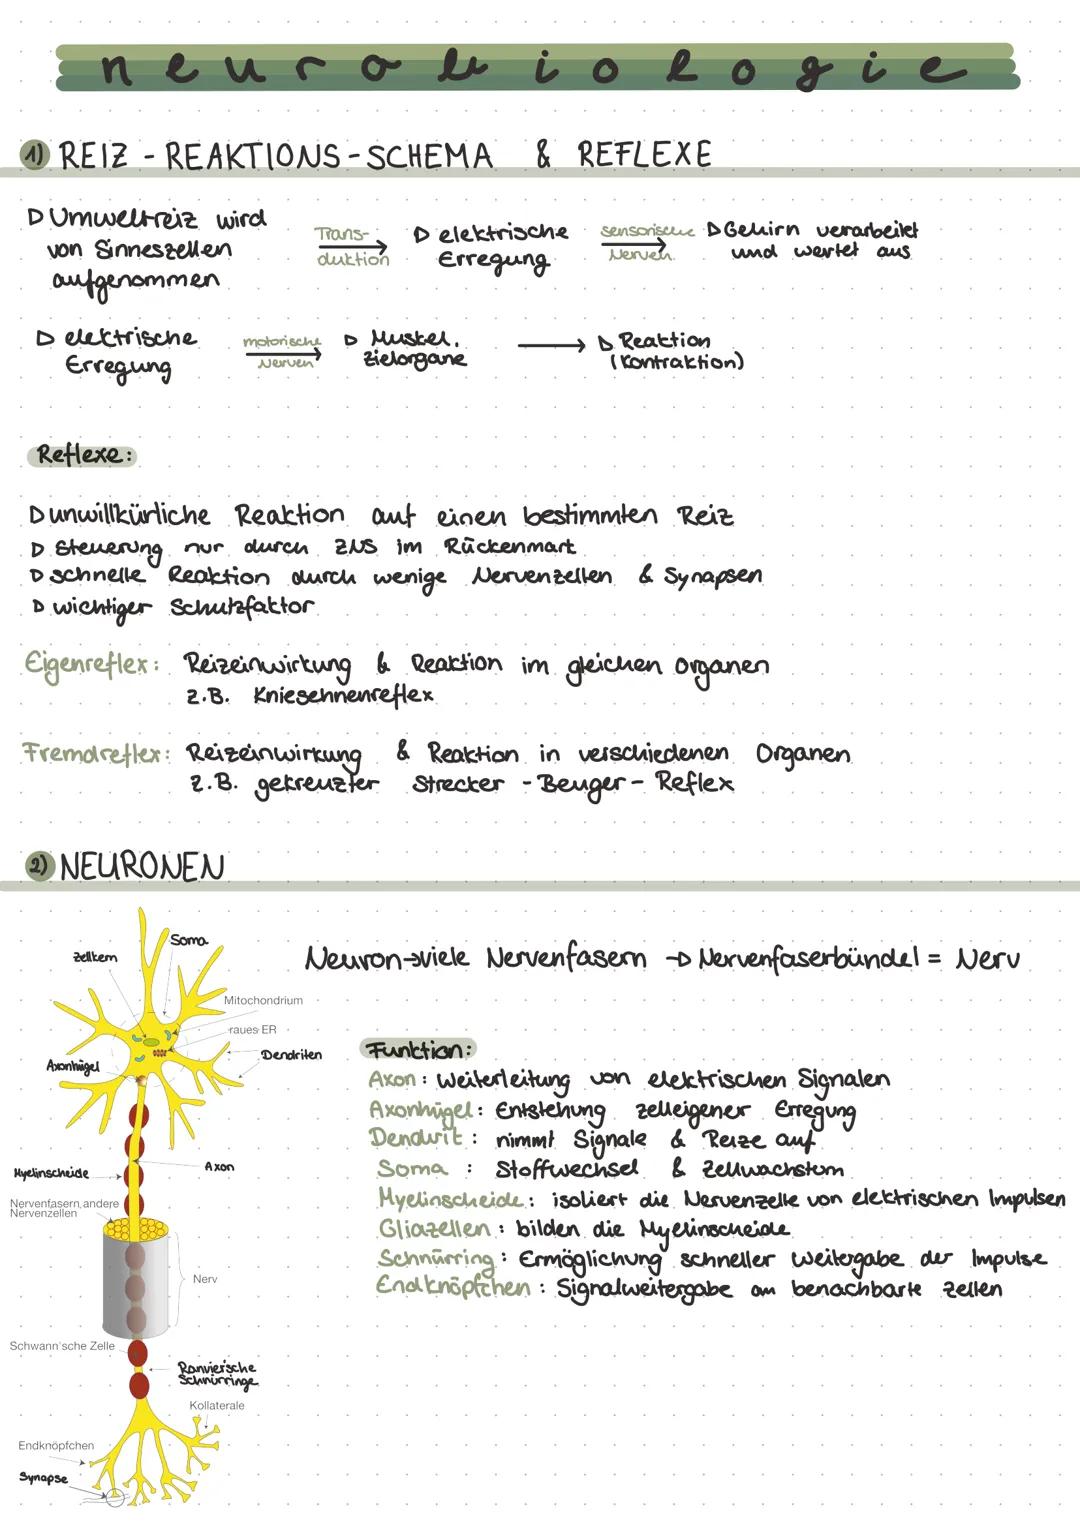 neurobiologie
1) REIZ - REAKTIONS - SCHEMA & REFLEXE
▷ Umweltreiz wird von Sinneszellen aufgenommen
Trans-duktion
▷ elektrische Erregung
sensorische Nerven
▷ Gehirn verarbeitet und wertet aus
▷ elektrische Erregung
motorische Nerven
▷ Muskel, Zielorgane
▷ Reaktion (Kontraktion)
Reflexe:
▷ unwillkürliche Reaktion auf einen bestimmten Reiz
▷ Steuerung nur durch ZNS im Rückenmark
▷ schnelle Reaktion durch wenige Nervenzellen & Synapsen
▷ wichtiger Schutzfaktor
Eigenreflex: Reizeinwirkung & Reaktion im gleichen Organen
z.B. Kniesehnenreflex
Fremdreflex: Reizeinwirkung & Reaktion in verschiedenen Organen
z.B. gekreuzter Strecker - Beuger - Reflex
2) NEURONEN
Neuron → viele Nervenfasern → Nervenfaserbündel = Nerv
Zellkern
Soma
Mitochondrium
raues ER
Dendriten
Axonhügel
Myelinscheide
Axon
Nervenfasern andere
Nervenzellen
Nerv
Schwann'sche Zelle
Ranvier'sche
Schnürringe
Kollaterale
Endknöpfchen
Synapse
Funktion:
Axon: Weiterleitung von elektrischen Signalen
Axonhügel: Entstehung zelleigener Erregung
Dendrit: nimmt Signale & Reize auf
Soma: Stoffwechsel & Zellwachstum
Myelinscheide: isoliert die Nervenzelle von elektrischen Impulsen
Gliazellen: bilden die Myelinscheide
Schnürring: Ermöglichung schneller Weitergabe der Impulse
Endknöpfchen: Signalweitergabe an benachbarte Zellen